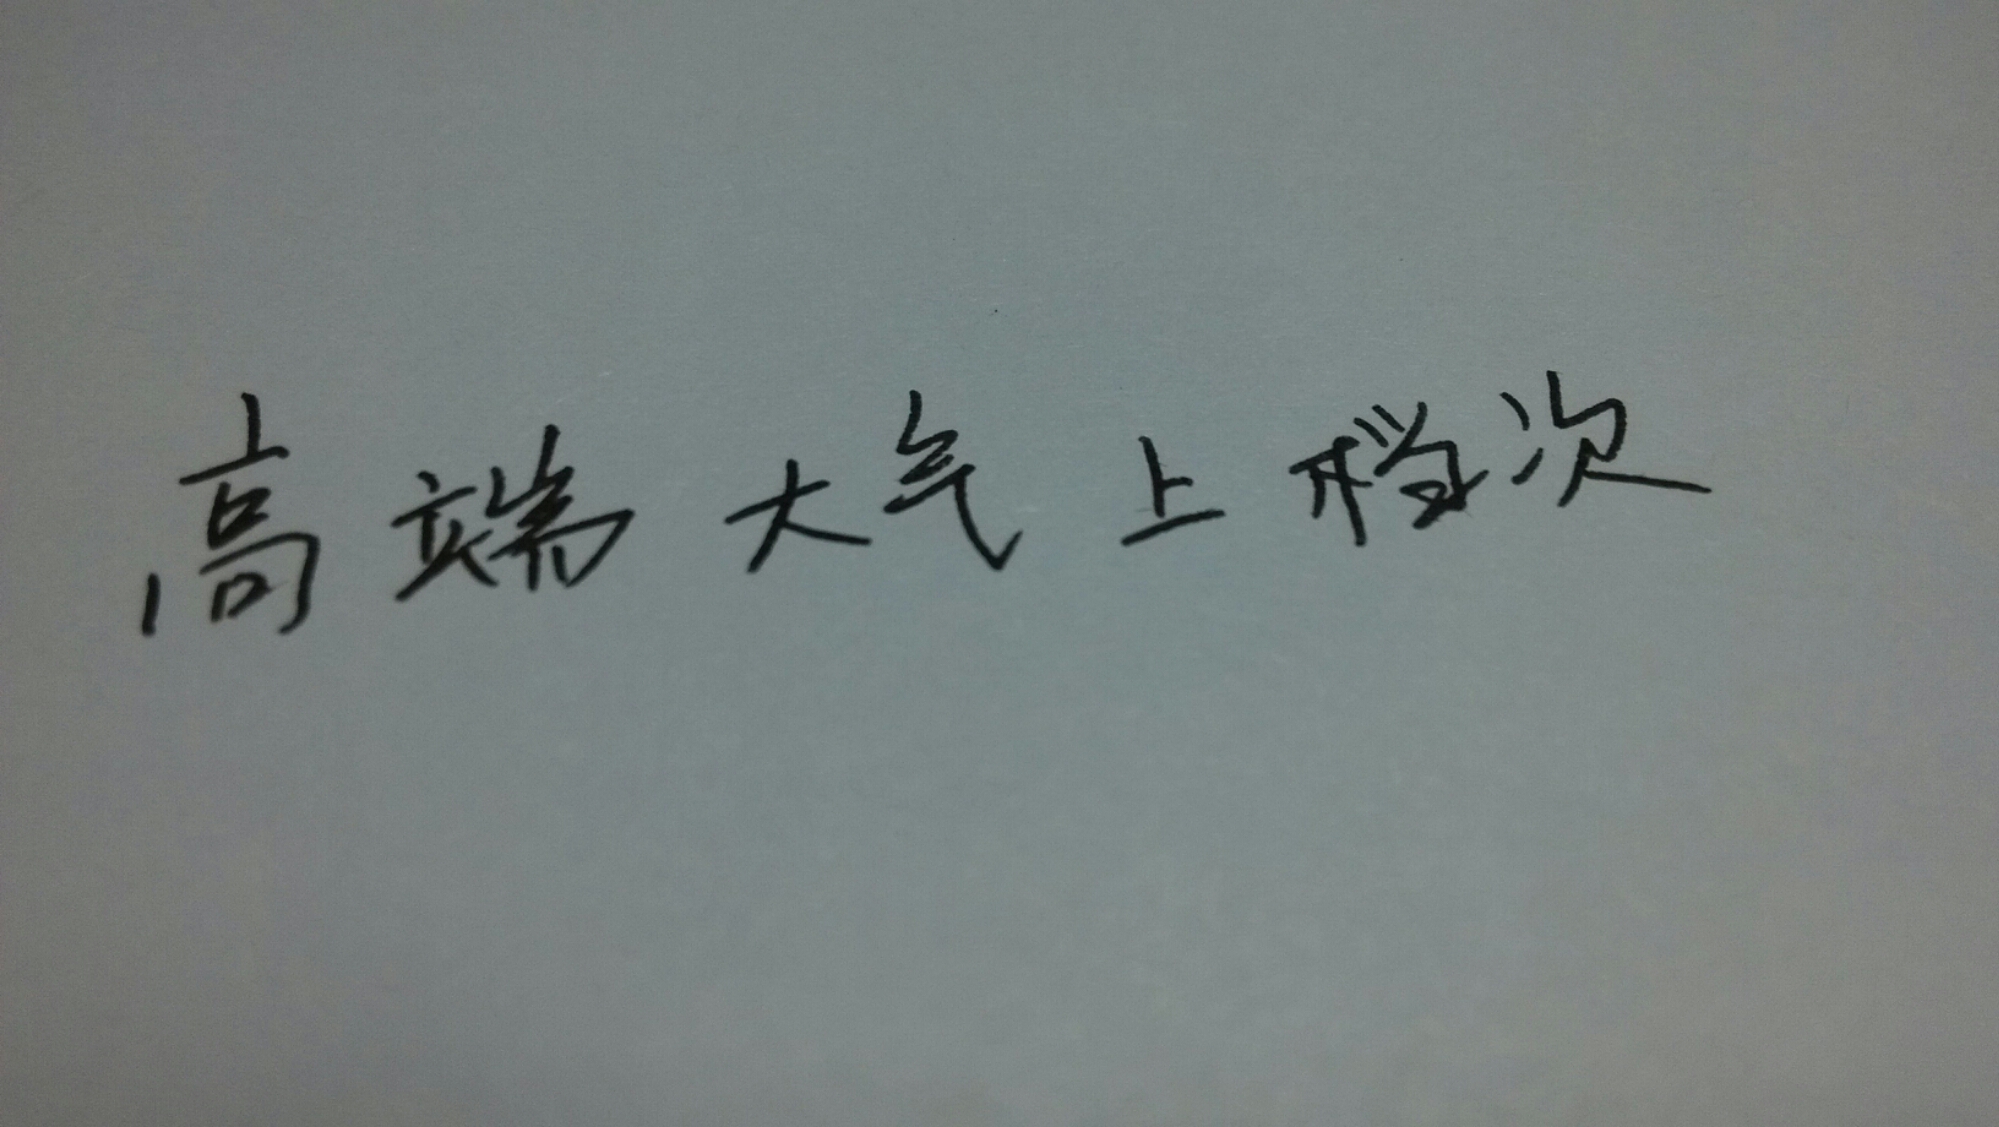 高端大气上档次